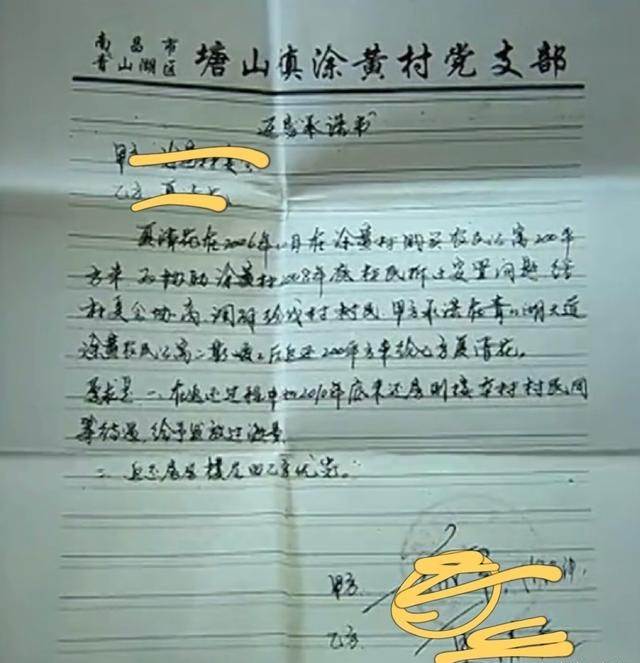 南昌市
青山湖区 塘山镇涂黄村党支部
还房承诺书
甲方
乙方
夏清花在2006年 月在涂黄村购买农民公寓200平
方米 为协助涂黄村2008年底村民拆迁安置问题 经
村委会协商,调解给我村村民,甲方承诺在青山湖大道
涂黄农民公寓二期竣工后返还200平方米给乙方夏清花。
要求是:一、在返还过程中如2010年底未还房则按本村村民同
等待遇,给予发放过渡费
二、返还房屋楼层由乙方优先。
甲方
乙方